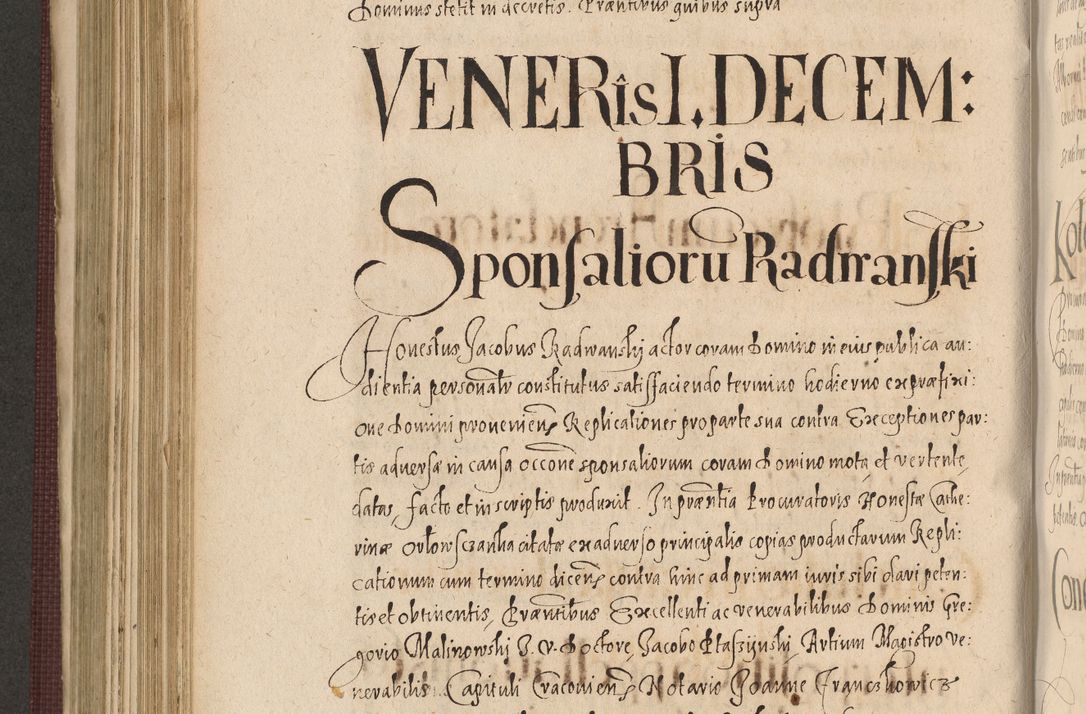 Dominus stetit in decretis. Præntibus quibus supra
VENERîs I. DECEM:
BRIS
Sponsalioru Radwanski
Honestus Jacobus Radwanskj actor coram Domino in eius publica au:
dientia personalr constitutus satisfaciendo termino hodierno ex præfixi:
one Domini provenien Replicationes pro parte sua contra Exceptiones par:
tis adversæ in causa occone sponsaliorum coram Domino mota et vertente
datas, facto et in scriptis produxit. In præntia Procuratoris Honestæ Cathe:
rinæ Orłowsczanka citatæ ex adverso principalis copias productarum Repli:
cationum cum termino dicen contra hinc ad primam iuris sibi dari peten:
tis et obtinentis, Præntibus Excellenti ac venerabilibus Dominis Gre:
gorio Malinowskj J. V. Doctore, Jacobo Ptaszynskj Artium Magistro Ve:
nerabilis Capituli Cracovien Notario Joanne Franczkowicz